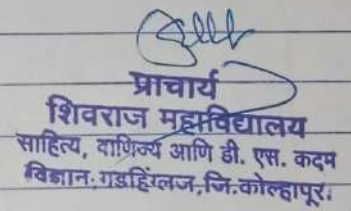 प्राचार्य
शिवराज महाविद्यालय
साहित्य, वाणिज्य आणि डी. एस. कदम
विज्ञान.गडहिंग्लज,जि.कोल्हापूर.